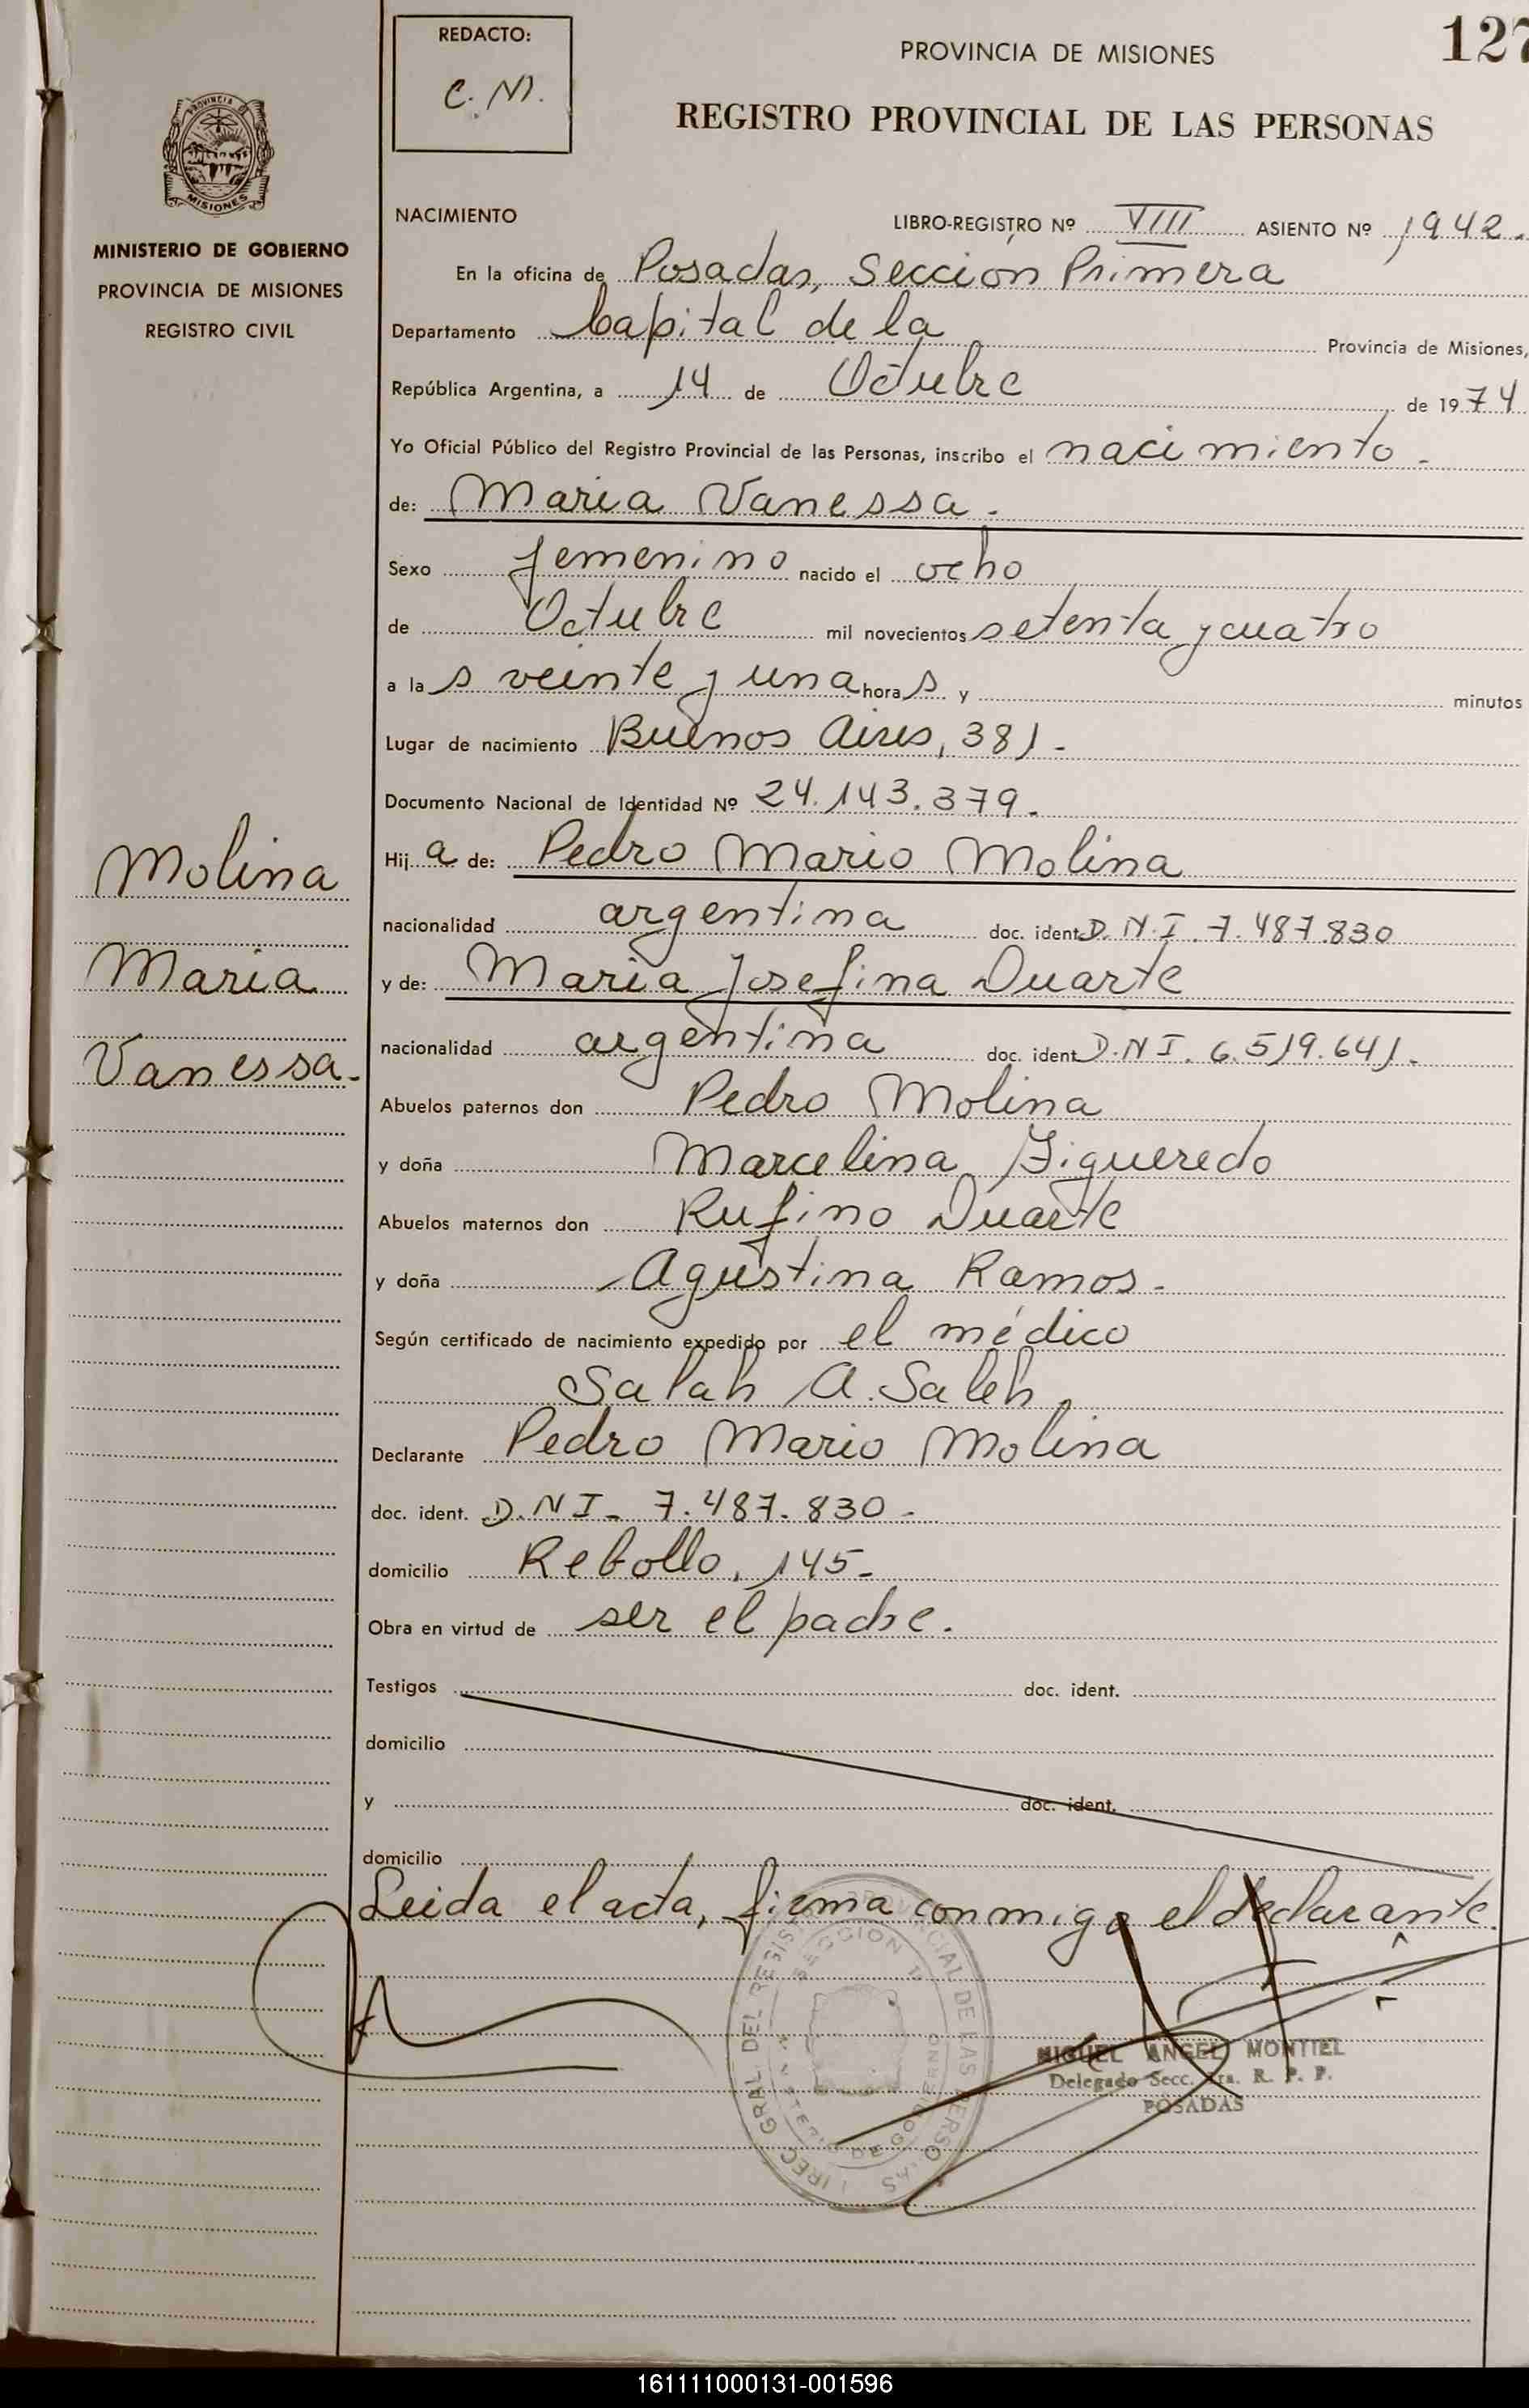 REDACTO:
C. M.
PROVINCIA DE MISIONES
127
REGISTRO PROVINCIAL DE LAS PERSONAS
PROVINCIA DE
MISIONES
MINISTERIO DE GOBIERNO
PROVINCIA DE MISIONES
REGISTRO CIVIL
NACIMIENTO LIBRO-REGISTRO Nº VIII ASIENTO Nº 1942.
En la oficina de Posadas, Sección Primera
Departamento Capital de la Provincia de Misiones,
República Argentina, a 14 de Octubre de 1974
Yo Oficial Público del Registro Provincial de las Personas, inscribo el nacimiento.
de: Maria Vanessa.
Sexo femenino nacido el ocho
de Octubre mil novecientos setenta y cuatro
a la s veinte y una hora s y minutos
Lugar de nacimiento Buenos Aires, 381.
Documento Nacional de Identidad Nº 24.143.379.
Hij a de: Pedro Mario Molina
nacionalidad argentina doc. ident. D.N.I. 7.487.830
y de: Maria Josefina Duarte
nacionalidad argentina doc. ident. D.N.I. 6.519.641.
Abuelos paternos don Pedro Molina
y doña Marcelina Figueredo
Abuelos maternos don Rufino Duarte
y doña Agustina Ramos.
Según certificado de nacimiento expedido por el médico
Salah A. Saleh
Declarante Pedro Mario Molina
doc. ident. D.N.I. 7.487.830.
domicilio Rebollo, 145.
Obra en virtud de ser el padre.
Testigos doc. ident.
domicilio
y doc. ident.
domicilio
Leida el acta, firma conmigo el declarante.
Molina
Maria
Vanessa.
SECCION 1ª
MIGUEL ANGEL MONTIEL
Delegado Secc. 1ra. R. P. P.
POSADAS
161111000131-001596